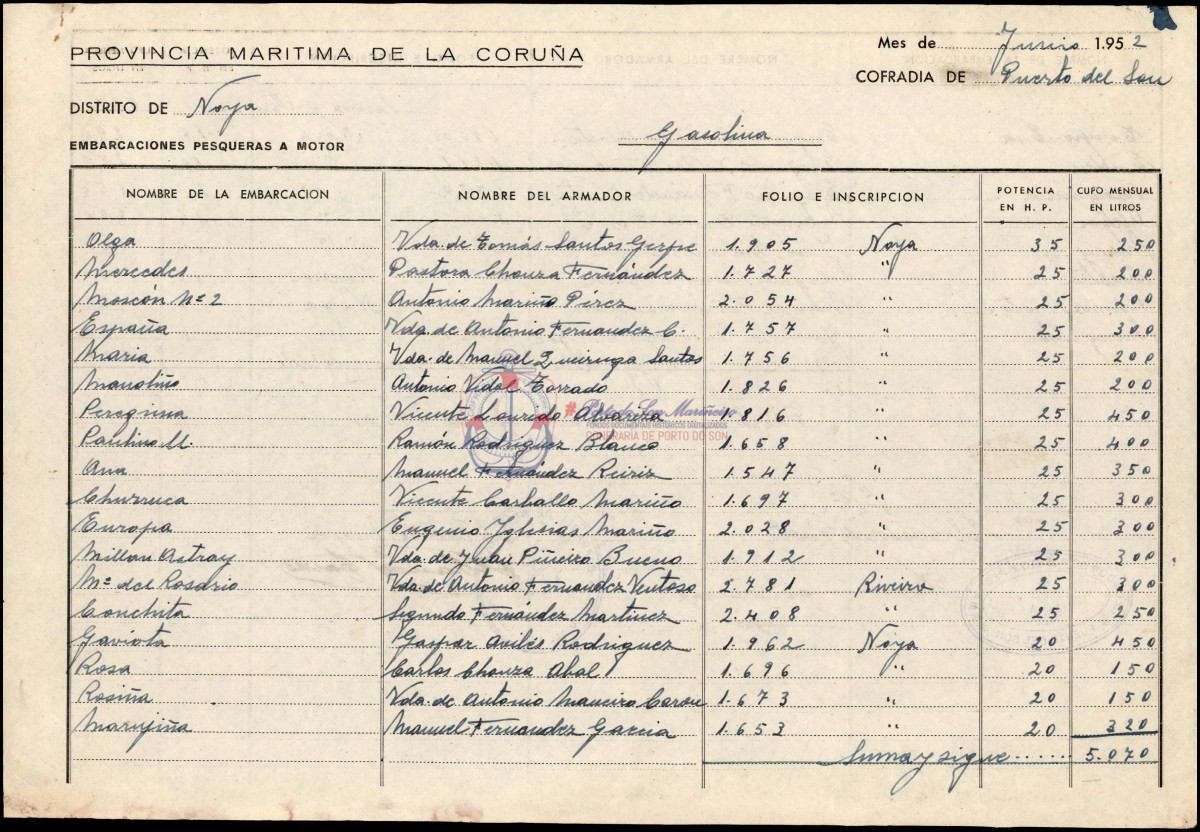 PROVINCIA MARITIMA DE LA CORUÑA
Mes de Junio 1.952
COFRADIA DE Puerto del Son
DISTRITO DE Noya
Gasolina
EMBARCACIONES PESQUERAS A MOTOR
NOMBRE DE LA EMBARCACION NOMBRE DEL ARMADOR FOLIO E INSCRIPCION POTENCIA EN H. P. CUPO MENSUAL EN LITROS
Olga Vda. de Tomás Santos Gerpe 1.905 Noya 35 250
Mercedes Pastora Chouza Fernández 1.727 " 25 200
Moscón Nº 2 Antonio Mariño Pérez 2.054 " 25 200
España Vda. de Antonio Fernandez C. 1.757 " 25 300
Maria Vda. de Manuel Queiruga Santos 1.756 " 25 200
Manoliño Antonio Vidal Torrado 1.826 " 25 200
Peregrina Vicente Lourido 1.816 " 25 450
Paulino M. Ramón Rodriguez Blanco 1.658 " 25 400
Ana Manuel Fernández Reiriz 1.547 " 25 350
Churruca Vicente Carballo Mariño 1.697 " 25 300
Europa Eugenio Yglesias Mariño 2.028 " 25 300
Millan Astray Vda. de Juan Piñeiro Bueno 1.912 " 25 300
Mª del Rosario Vda. de Antonio Fernandez Ventoso 2.781 Riveira 25 300
Conchita Segundo Fernández Martinez 2.408 " 25 250
Gaviota Gaspar Avilés Rodriguez 1.962 Noya 20 450
Rosa Carlos Chouza Abal 1.696 " 20 150
Rosiña Vda. de Antonio Maneiro 1.673 " 20 150
Marujiña Manuel Fernandez Garcia 1.653 " 20 320
Suma y sigue 5.070
#Porto do Son Mariñeiro
FONDOS DOCUMENTAIS HISTÓRICOS DIGITALIZADOS
CONFRARÍA DE PORTO DO SON